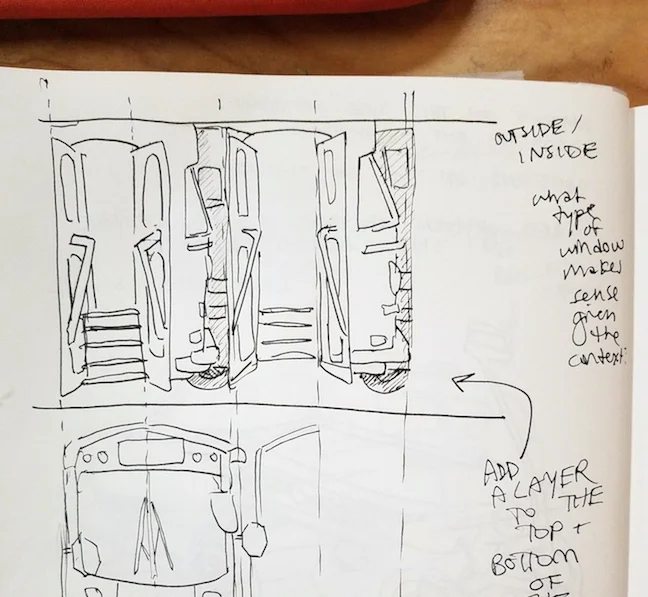 OUTSIDE /
INSIDE
what
type
of
window
makes
sense
given
the
context.
ADD
A LAYER
TO THE
TOP +
BOTTOM
OF